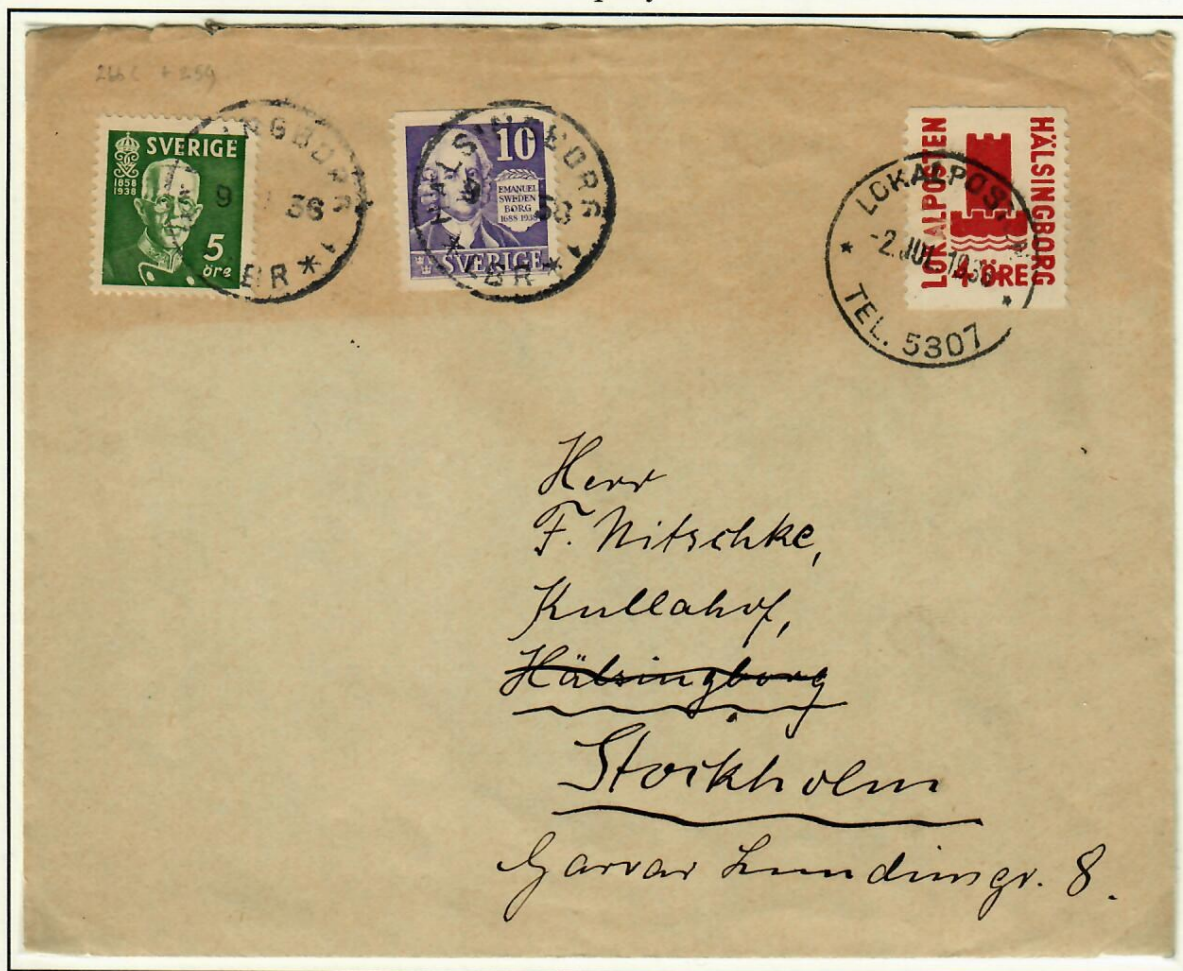 SVERIGE
1858
1938
5
öre
10
EMANUEL
SWEDEN
BORG
1688 1938
SVERIGE
HÄLSINGBORG 1
LBR
LOKALPOSTEN
HÄLSINGBORG
4 ÖRE
LOKALPOSTEN
-2. JUL. 1938
TEL. 5307
Herr
F. Nitschke,
Kullahof,
Hälsingborg
Stockholm
Garvar Lundinsgr. 8.